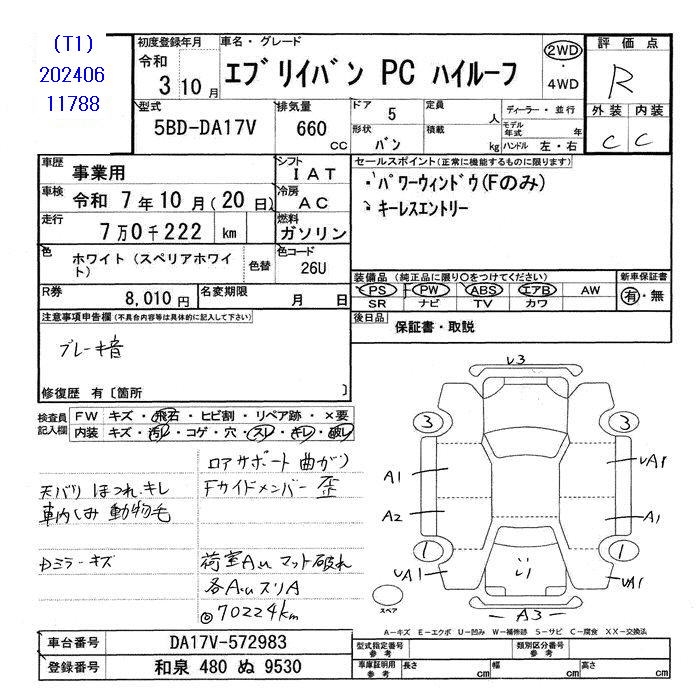 (T1)
202406
11788
初度登録年月
令和
3 10月
車名・グレード
エブリイバン PC ハイルーフ
2WD
・
4WD
評価点
R
外装 内装
C C
型式
5BD-DA17V
排気量
660 cc
ドア 5
形状 バン
定員 人
積載 kg
ディーラー・並行
モデル年式 年
ハンドル 左・右
車歴 事業用
シフト IAT
車検 令和 7年10月(20日)
冷房 AC
走行 7万0千222 km
燃料 ガソリン
色 ホワイト(スペリアホワイト) 色替
色コード 26U
R券 8,010円
名変期限 月 日
セールスポイント(正常に機能するものに限ります)
・パワーウィンドウ(Fのみ)
・キーレスエントリー
装備品(純正品に限り○をつけてください)
新車保証書
PS PW ABS エアB AW
有・無
SR ナビ TV カワ
後日品 保証書・取説
注意事項申告欄(不具合内容等は具体的に記入して下さい)
ブレーキ音
修復歴 有〔箇所 〕
検査員記入欄
FW キズ・飛石・ヒビ割・リペア跡・×要
内装 キズ・汚レ・コゲ・穴・スレ・キレ・破レ
ロアサポート曲がり
天バリ ほつれ.キレ
Fサイドメンバー 歪
車内しみ 動物毛
Dミラーキズ
荷室Au マット破れ
各AuスリA
◎70224km
U3
3 3
A1 UA1
A2 A1
1 1
UA1 UA1
A3
スペア
A-キズ E-エクボ U-凹み W-補修跡 S-サビ C-腐食 XX-交換済
車台番号 DA17V-572983
登録番号 和泉 480 ぬ 9530
型式指定番号 参考
類別区分番号 参考
車庫証明用 参考
長さ cm 幅 cm 高さ cm